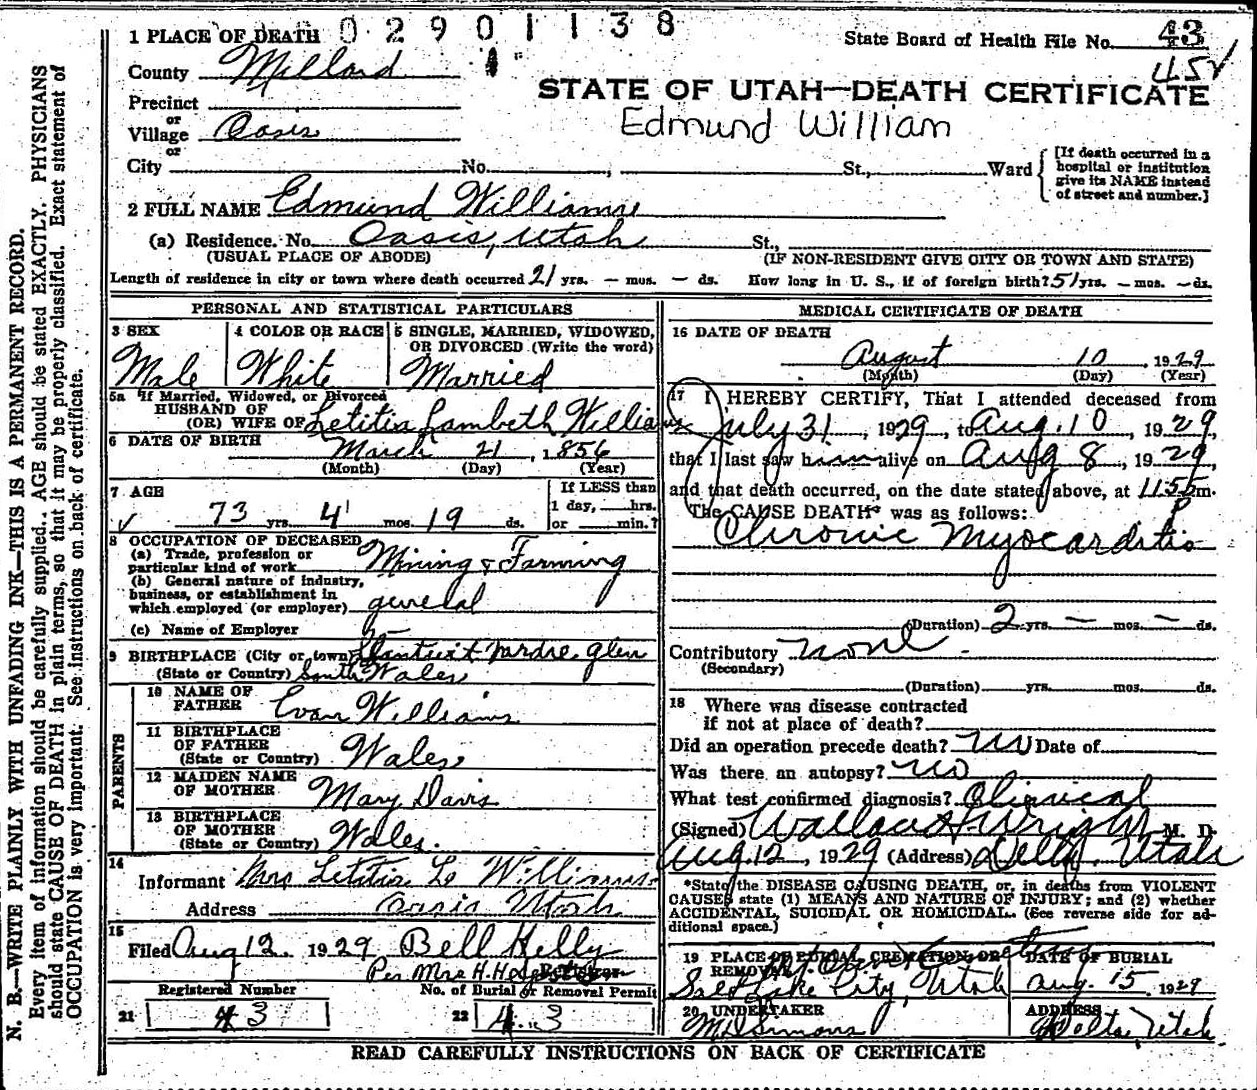 02901138
1 PLACE OF DEATH
State Board of Health File No. 43
County Millard
45
STATE OF UTAH—DEATH CERTIFICATE
Precinct
Edmund William
or
Village Oasis
or
City No. , St., Ward
[If death occurred in a hospital or institution give its NAME instead of street and number.]
2 FULL NAME Edmund Williams
(a) Residence. No. Oasis, Utah St.,
(USUAL PLACE OF ABODE) (IF NON-RESIDENT GIVE CITY OR TOWN AND STATE)
Length of residence in city or town where death occurred 21 yrs. — mos. — ds. How long in U. S., if of foreign birth? 51 yrs. — mos. — ds.
PERSONAL AND STATISTICAL PARTICULARS
3 SEX
Male
4 COLOR OR RACE
White
5 SINGLE, MARRIED, WIDOWED,
OR DIVORCED (Write the word)
Married
5a If Married, Widowed, or Divorced
HUSBAND OF
(OR) WIFE OF Letitia Lambeth Williams
6 DATE OF BIRTH March 21, 1856
(Month) (Day) (Year)
7 AGE
If LESS than
1 day, hrs.
or min.?
✓ 73 yrs. 4 mos. 19 ds.
8 OCCUPATION OF DECEASED
(a) Trade, profession or
particular kind of work Mining & Farming
(b) General nature of industry,
business, or establishment in
which employed (or employer) general
(c) Name of Employer
9 BIRTHPLACE (City or town)
(State or Country) South Wales
PARENTS
10 NAME OF
FATHER Evan Williams
11 BIRTHPLACE
OF FATHER
(State or Country) Wales
12 MAIDEN NAME
OF MOTHER Mary Davis
13 BIRTHPLACE
OF MOTHER
(State or Country) Wales.
14
Informant Mrs Letitia L. Williams
Address Oasis Utah
15
Filed Aug 12. 1929 Bell Kelly
Per Mrs H.
Registrar
Registered Number No. of Burial or Removal Permit
21 43 22 43
MEDICAL CERTIFICATE OF DEATH
16 DATE OF DEATH
August 10 1929
(Month) (Day) (Year)
17 I HEREBY CERTIFY, That I attended deceased from
July 31, 1929, to Aug. 10, 1929,
that I last saw him alive on Aug 8, 1929,
and that death occurred, on the date stated above, at 11:55 P m.
The CAUSE DEATH* was as follows:
Chronic Myocarditis
(Duration) 2 yrs. — mos. — ds.
Contributory none.
(Secondary)
(Duration) yrs. mos. ds.
18 Where was disease contracted
if not at place of death?
Did an operation precede death? no Date of
Was there an autopsy? no
What test confirmed diagnosis? Clinical
(Signed) Wallace Wright M. D.
Aug. 12, 1929 (Address) Delta, Utah
*State the DISEASE CAUSING DEATH, or, in deaths from VIOLENT
CAUSES state (1) MEANS AND NATURE OF INJURY; and (2) whether
ACCIDENTAL, SUICIDAL OR HOMICIDAL. (See reverse side for ad-
ditional space.)
19 PLACE OF BURIAL, CREMATION, OR
REMOVAL Mt. Olivet Cemetery
Salt Lake City, Utah
DATE OF BURIAL
Aug. 15 1929
20 UNDERTAKER
ADDRESS
Delta, Utah
READ CAREFULLY INSTRUCTIONS ON BACK OF CERTIFICATE
N. B.—WRITE PLAINLY WITH UNFADING INK—THIS IS A PERMANENT RECORD.
Every item of information should be carefully supplied. AGE should be stated EXACTLY. PHYSICIANS
should state CAUSE OF DEATH in plain terms, so that it may be properly classified. Exact statement of
OCCUPATION is very important. See instructions on back of certificate.